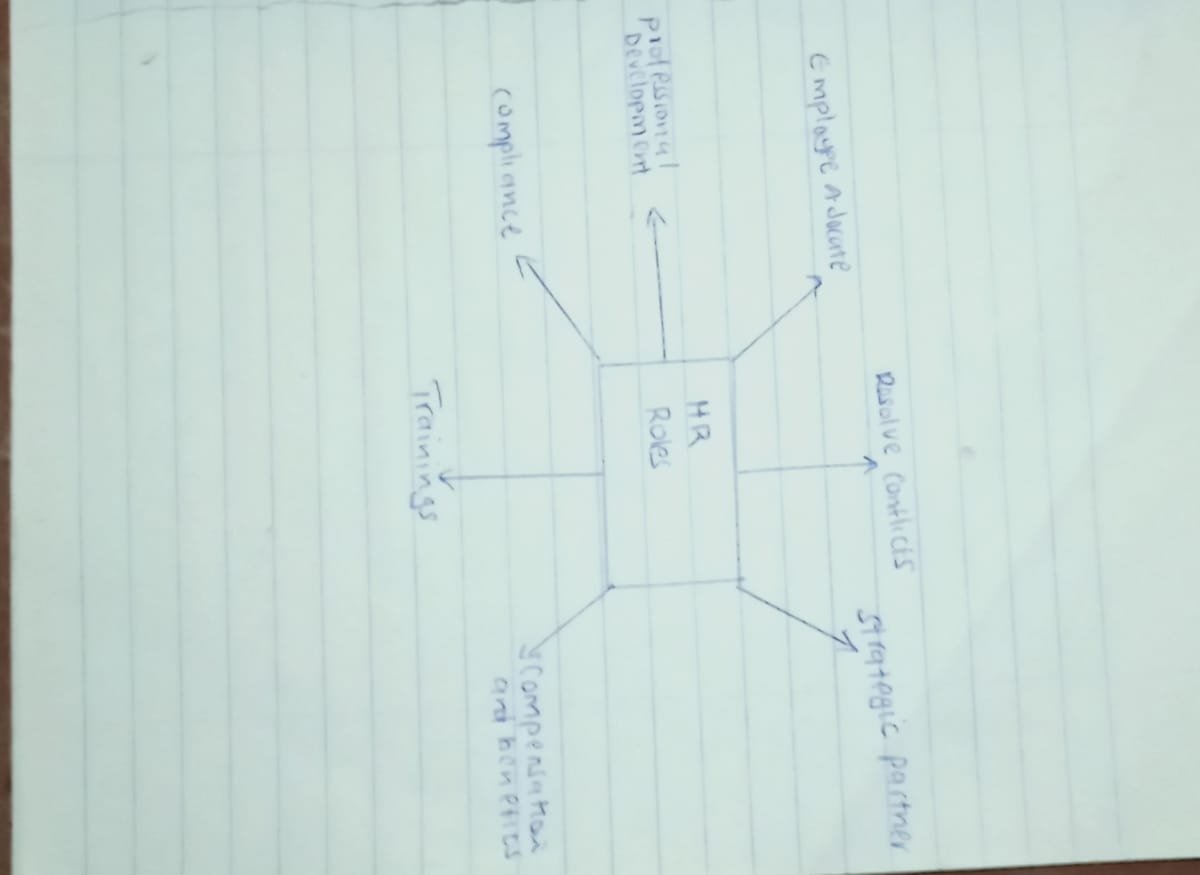 Employee Advocate
Resolve conflicts
Strategic partner
Professional
Development
HR
Roles
Compliance
Trainings
Compensation
and benefits